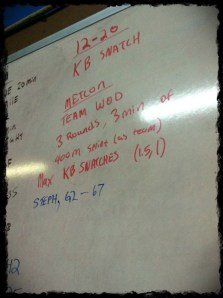 12-20
KB SNATCH
METCON
TEAM WOD
3 ROUNDS, 3 MIN OF
400M SPRINT (AS TEAM)
MAX KB SNATCHES (1.5, 1)
STEPH, GZ - 67
20 MIN